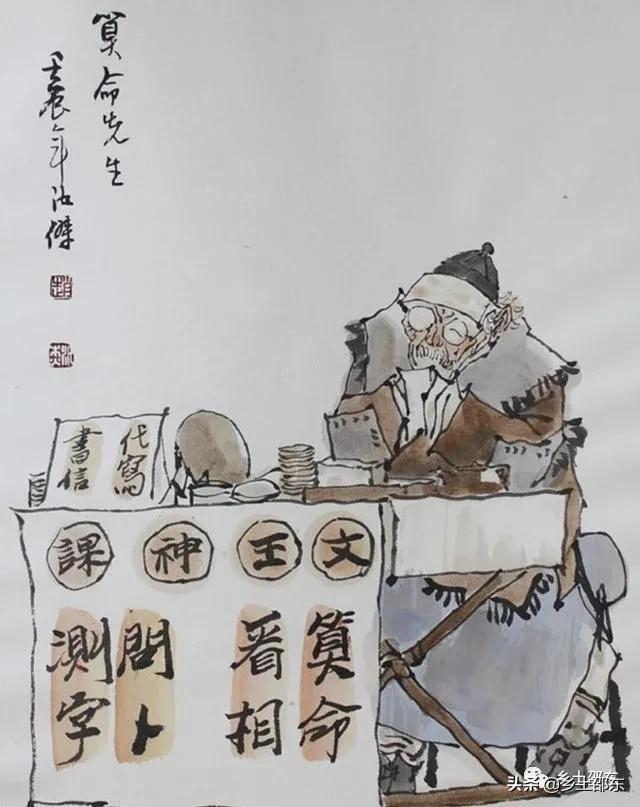 算命先生
壬辰年 傑
代寫
書信
文王神課
算命
看相
問卜
測字
乡土邵东
头条 @乡土邵东